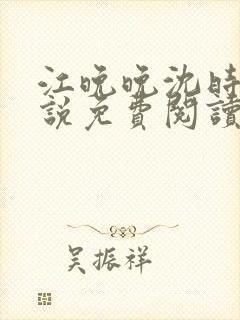 江晚晚沈時
說免費閱讀
吴振祥